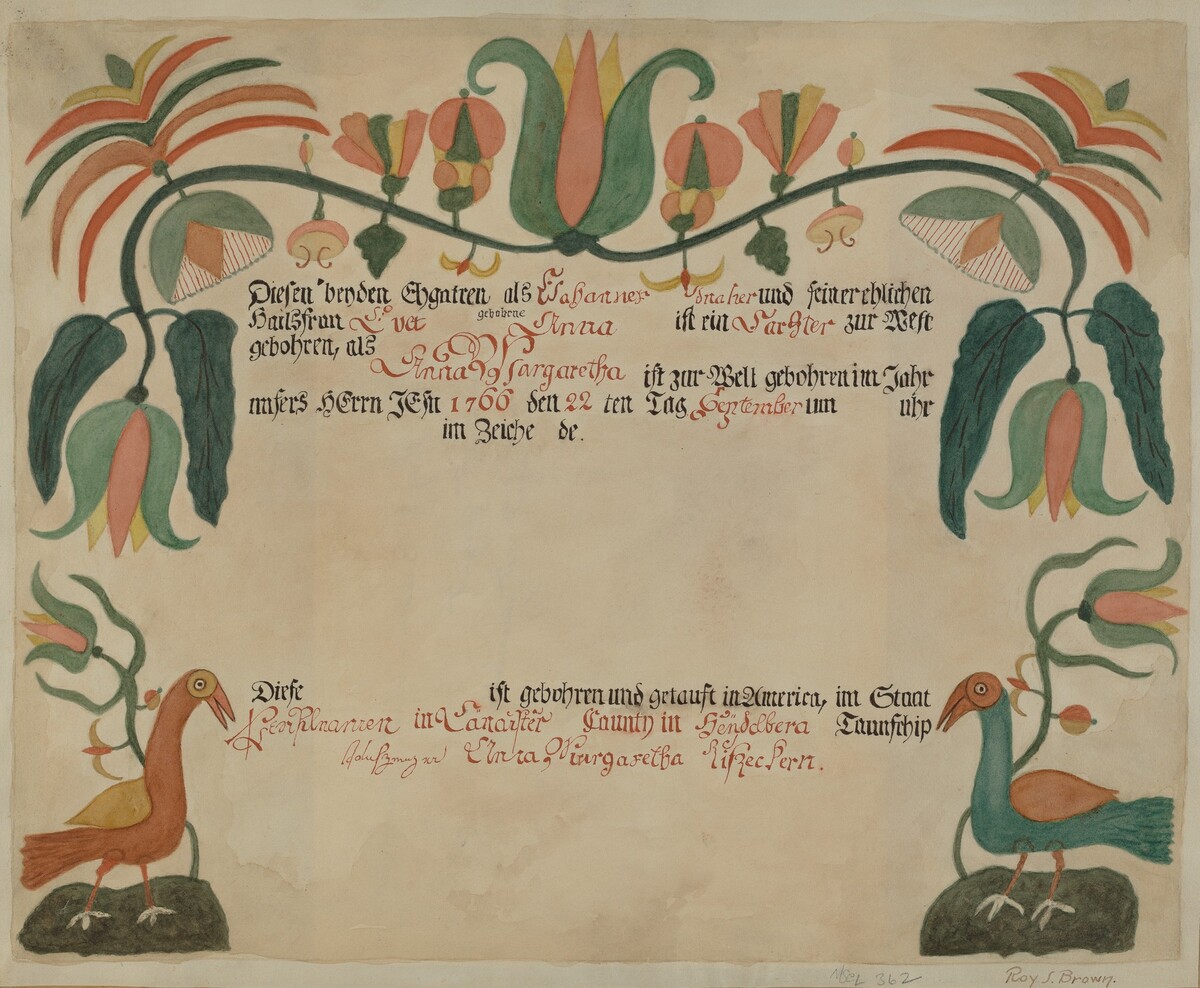 Diesen beyden Ehgatten als Johannes und seiner ehlichen
Hausfrau Evet gebohrne Anna ist ein Tochter zur Welt
gebohren, als
Anna Margaretha ist zur Welt gebohren im Jahr
unsers HErrn JEsu 1766 den 22 ten Tag September um uhr
im Zeiche de.
Diese ist gebohren und getauft in America, im Staat
in County in Taunschip
Anna Margaretha
MCL 362
Roy S. Brown.